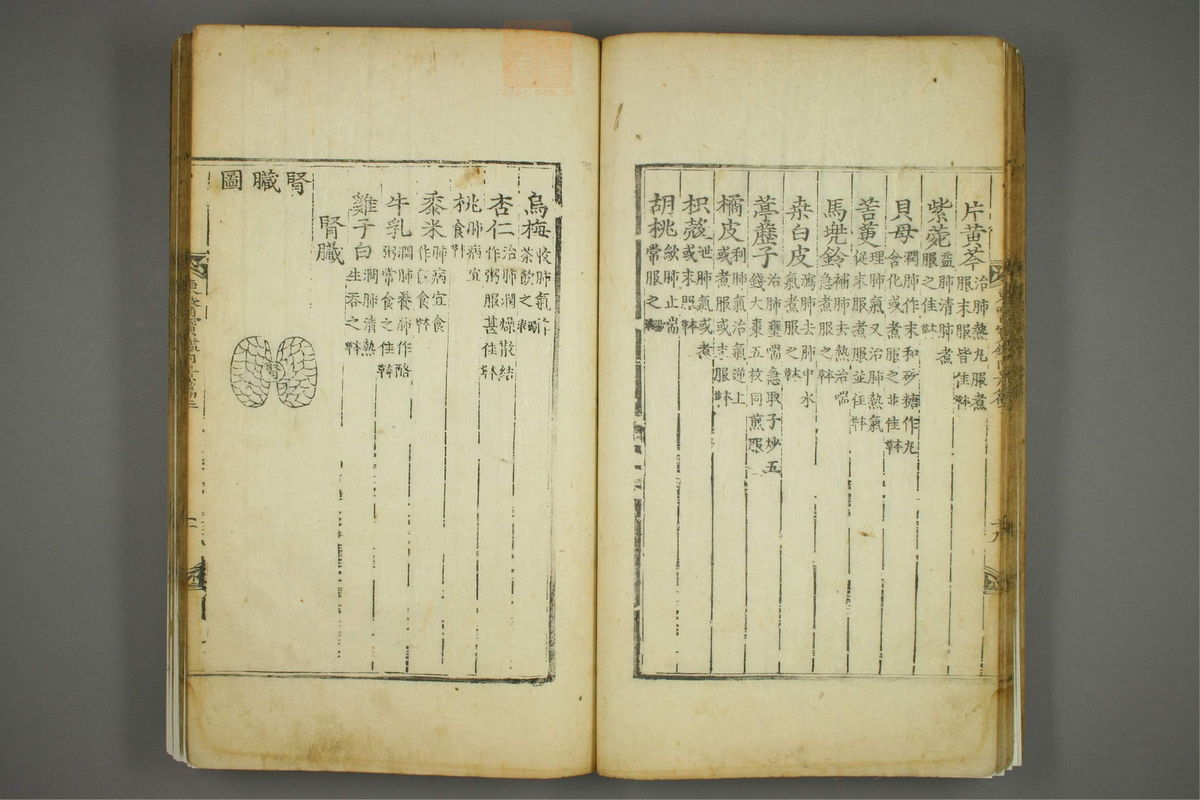 片黃芩治肺熱丸服煮服末服皆佳
紫菀益肺淸肺煮服之佳
貝母潤肺作末和砂糖作丸含化或煮服之並佳
苦茰理肺氣又治肺熱氣促末服煮服並佳
馬兠鈴補肺去熱治喘急煮服之
桒白皮瀉肺去肺中水氣煮服之
葶藶子治肺壅喘急取子炒五錢大棗五枚同煎服
橘皮利肺氣治氣逆上或煮服或末服
枳殼泄肺氣或煮或末服
胡桃歛肺止喘常服之
烏梅收肺氣作茶飮之
杏仁治肺潤燥散結作粥服甚佳
桃肺病宜食
黍米肺病宜食作飯食
牛乳潤肺養肺作酪粥常食之佳
雞子白潤肺淸熱生呑之
腎臟
腎臟圖
腎